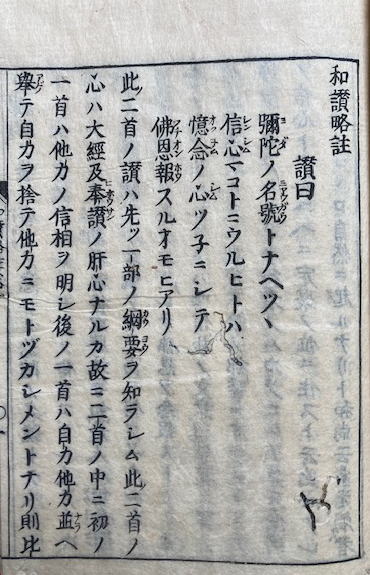 和讃略註
讃曰
彌陀ノ名號トナヘツヽ
信心マコトニウルヒトハ
憶念ノ心ツ子ニシテ
佛恩報スルオモヒアリ
此二首ノ讃ハ先ツ一部ノ綱要ヲ知ラシム此二首ノ
心ハ大經及奉讃ノ肝心ナルカ故ニ二首ノ中ニ初ノ
一首ハ他力ノ信相ヲ明シ後ノ一首ハ自力他力並ヘ
舉テ自力ヲ捨テ他力ニモトヅカシメントナリ則此